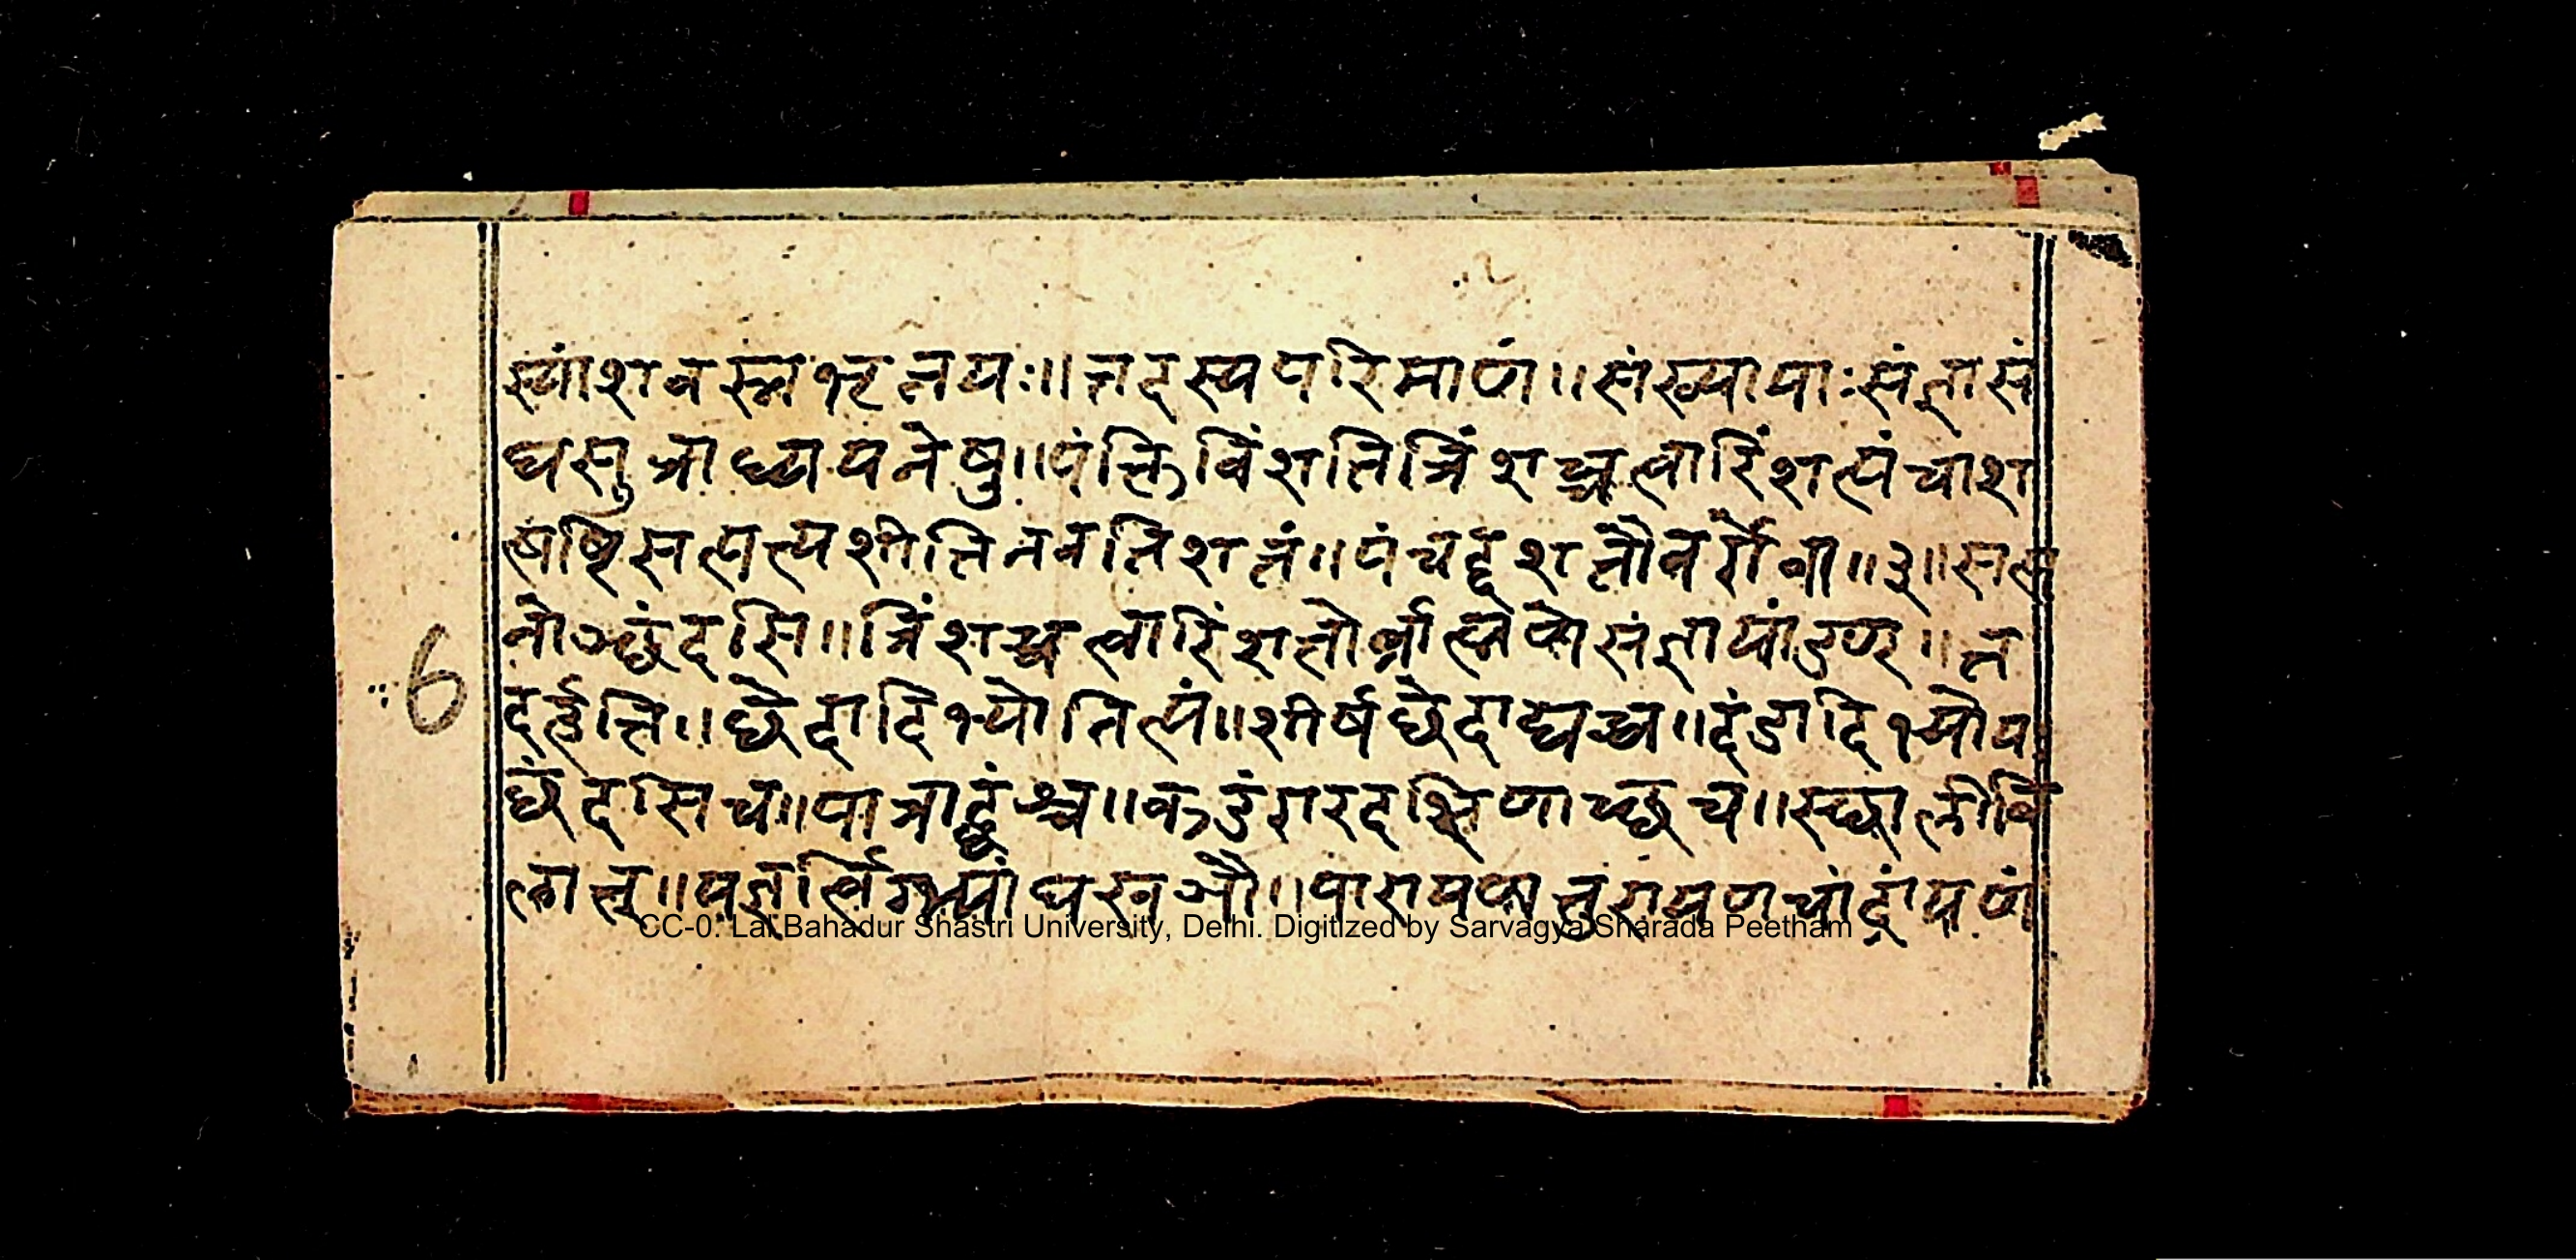 स्यांशवस्नभृतयः॥तदस्यपरिमाणं॥संख्यायाःसंज्ञासं
घसूत्राध्ययनेषु॥पंक्तिविंशतित्रिंशच्चत्वारिंशत्पंचाश
त्षष्टिसप्तत्यशीतिनवतिशतं॥पंचद्दशतौवर्गेवा॥३॥सप्त
नोञ्छंदसि॥त्रिंशच्चत्वारिंशतोर्ब्राह्मणेसंज्ञायांडण्॥त
दर्हति॥छेदादिभ्योनित्यं॥शीर्षछेदाद्यच्च॥दंडादिभ्योयः
छंदसिच॥पात्राद्घंश्च॥कडंगरदक्षिणाच्छच॥स्थालीबि
लात्॥यज्ञर्त्विग्भ्यांघखञौ॥पारायणतुरायणचांद्रायणं
6
CC-0. Lal Bahadur Shastri University, Delhi. Digitized by Sarvagya Sharada Peetham